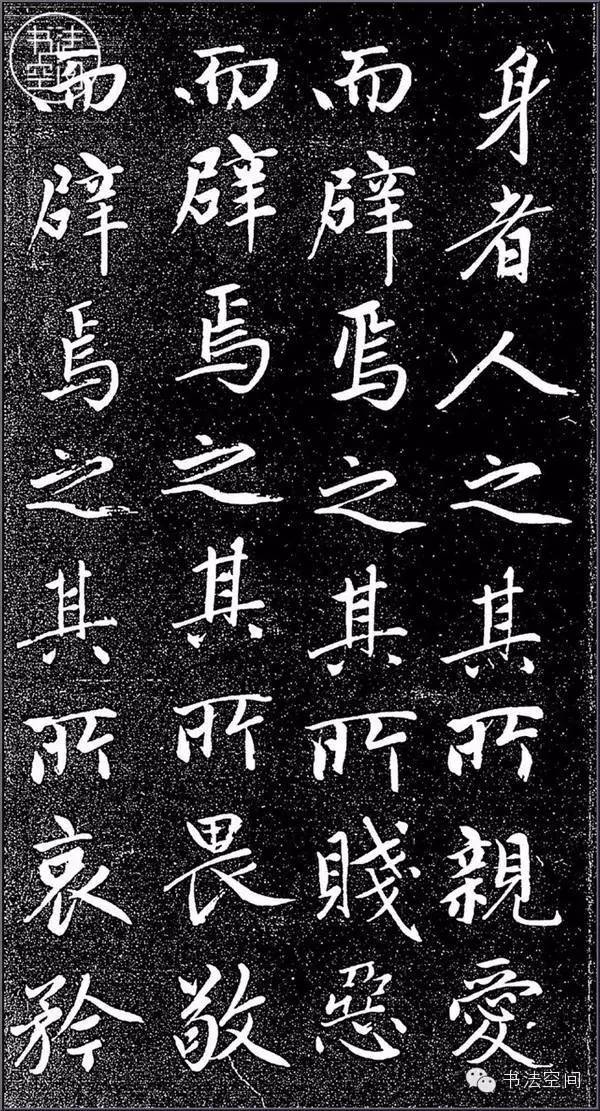 身者人之其所親愛
而辟焉之其所賤惡
而辟焉之其所畏敬
而辟焉之其所哀矜
书法空间
书法空间